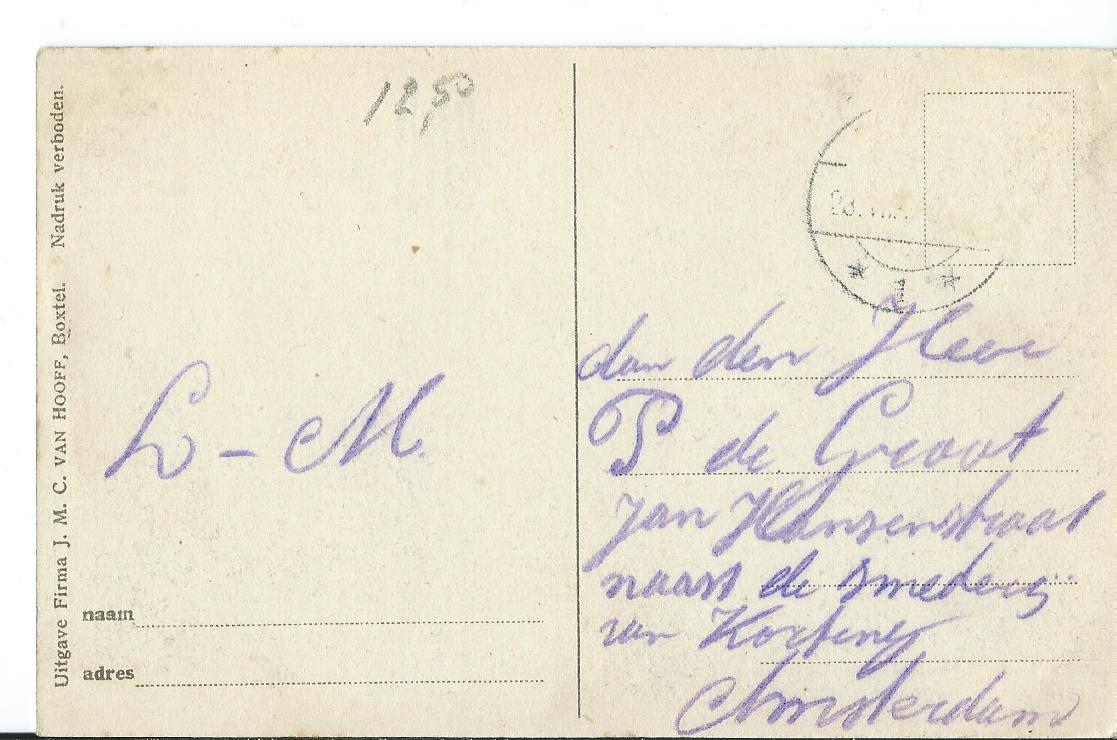 Uitgave Firma J. M. C. VAN HOOFF, Boxtel. Nadruk verboden.
12,50
L - M.
naam
adres
1
Aan den Heer
P de Groot
Jan Hansenstraat
naast de smederij
van
Amsterdam